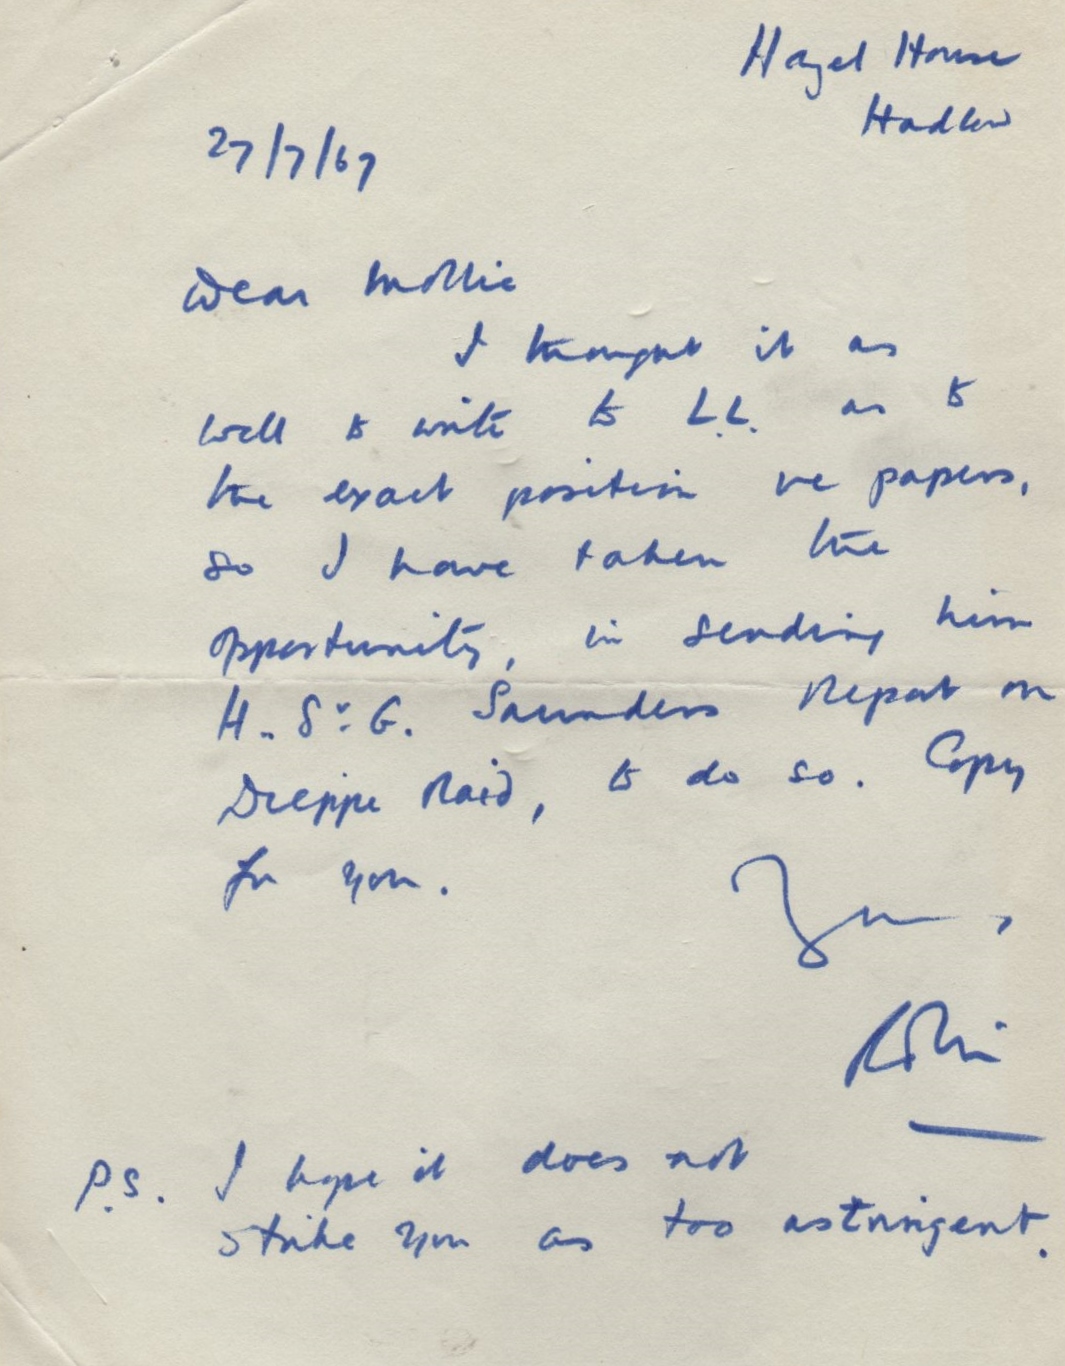 Hazel House
Hadlow
27/7/67
Dear Mollie
I thought it as
well to write to L.L. as to
the exact position re papers,
so I have taken the
opportunity, in sending him
H. St. G. Saunders Report on
Dieppe Raid, to do so. Copy
for you.
Yours,
Robin
P.S. I hope it does not
strike you as too astringent.